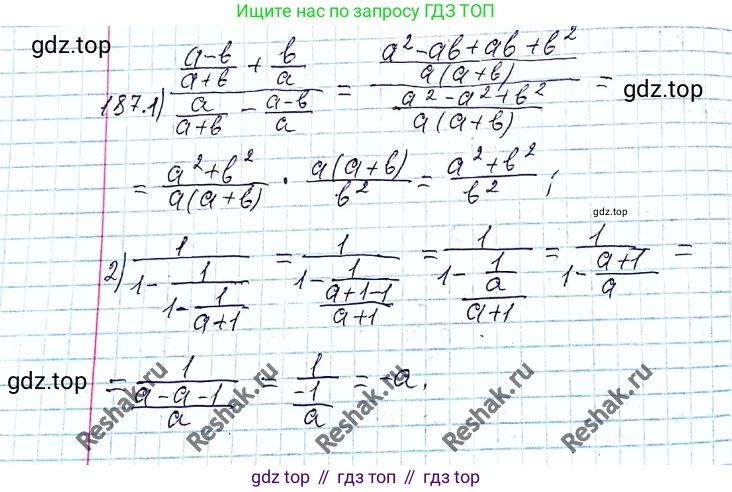 Ищите нас по запросу ГДЗ ТОП
gdz.top
187.1) ((a-b)/(a+b) + b/a)/(a/(a+b) - (a-b)/a) = ((a²-ab+ab+b²)/(a(a+b)))/((a²-a²+b²)/(a(a+b))) =
gdz.top
= (a²+b²)/(a(a+b)) · (a(a+b))/b² = (a²+b²)/b² ;
gdz.top
2) 1/(1-1/(1-1/(a+1))) = 1/(1-1/((a+1-1)/(a+1))) = 1/(1-(1/a)/(a+1)) = 1/(1-(a+1)/a) =
gdz.top
= 1/((a-a-1)/a) = 1/(-1/a) = -a.
Reshak.ru
Reshak.ru
Reshak.ru
Reshak.ru
Reshak.ru
gdz.top // гдз топ // gdz.top